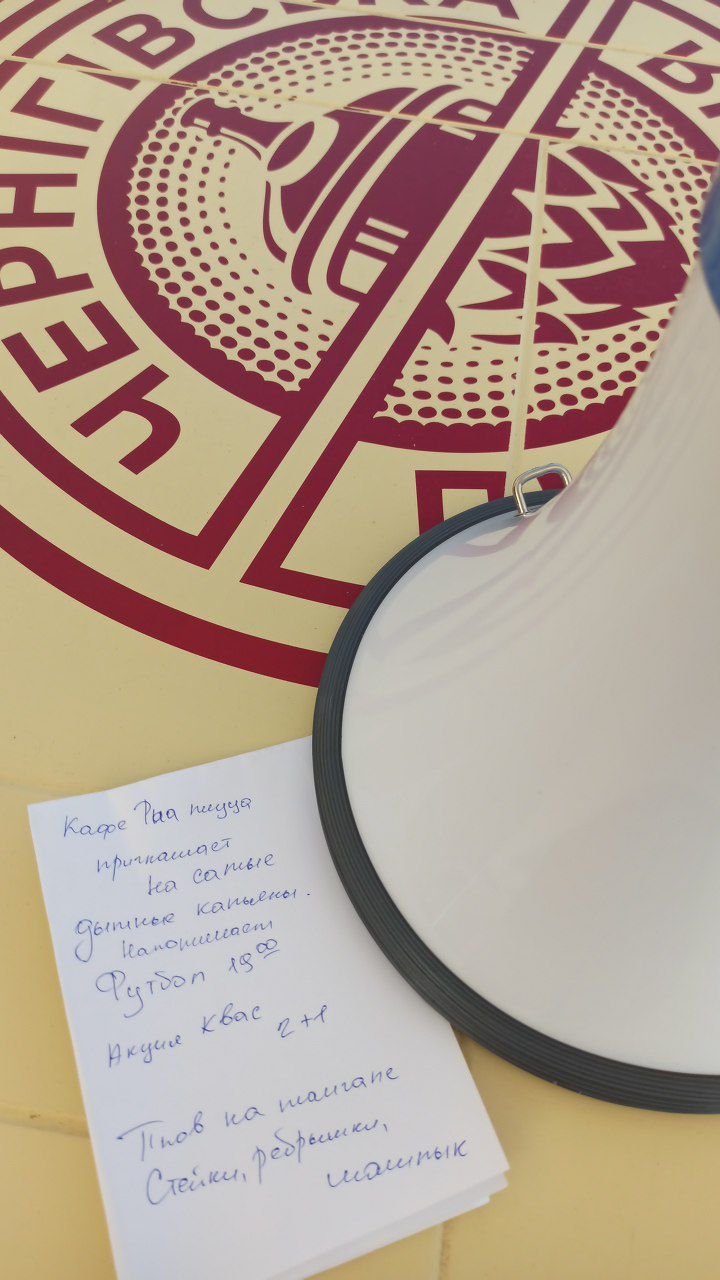 ЧЕРНІГІВСЬКА
Кафе Рыа пицца
приглашает
на самые
дымные кальяны.
Напоминаем
Футбол 19⁰⁰
Акция Квас 2+1
Плов на мангале
Стейки, ребрышки,
шашлык